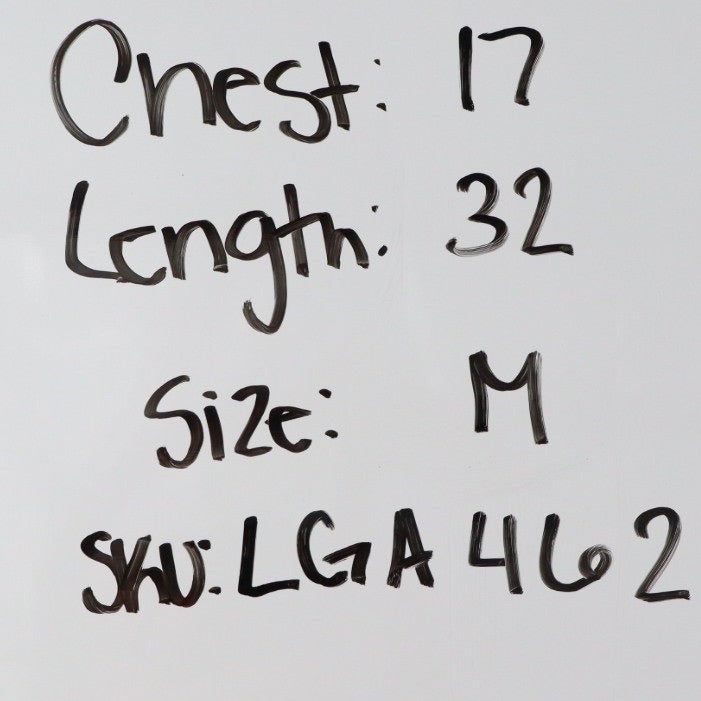 Chest: 17
Length: 32
Size: M
SKU: LGA 462